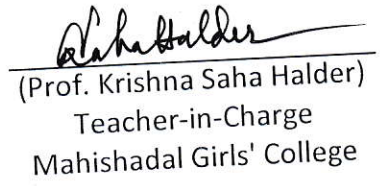 KSahaHalder
(Prof. Krishna Saha Halder)
Teacher-in-Charge
Mahishadal Girls' College